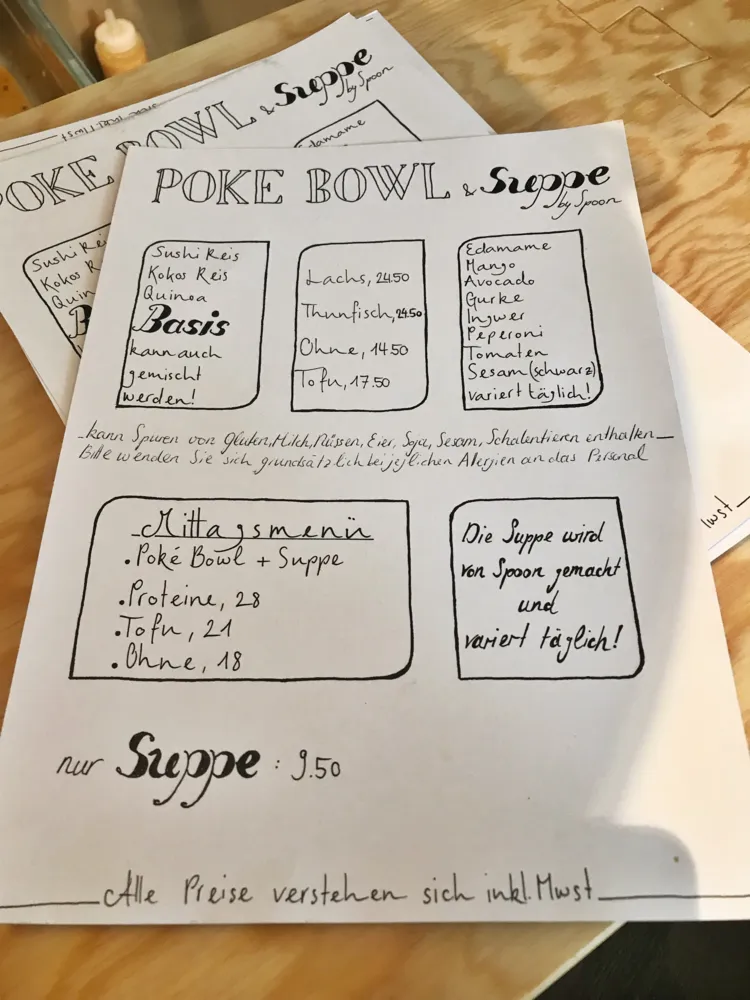 POKE BOWL & Suppe
by Spoon
Sushi Reis
Kokos Reis
Quinoa
Basis
kann auch
gemischt
werden!
Lachs, 24.50
Thunfisch, 24.50
Ohne, 14.50
Tofu, 17.50
Edamame
Mango
Avocado
Gurke
Ingwer
Peperoni
Tomaten
Sesam (schwarz)
variert täglich!
kann Spuren von Gluten, Milch, Nüssen, Eier, Soja, Sesam, Schalentieren enthalten
Bitte wenden Sie sich grundsätzlich bei jeglichen Alergien an das Personal
Mittagsmenü
• Poké Bowl + Suppe
• Proteine, 28
• Tofu, 21
• Ohne, 18
Die Suppe wird
von Spoon gemacht
und
variert täglich!
nur Suppe : 9.50
Alle Preise verstehen sich inkl. Mwst
POKE BOWL & Suppe
by Spoon
Sushi Rei
Kokos R
Quin
B
Edamame
Mwst